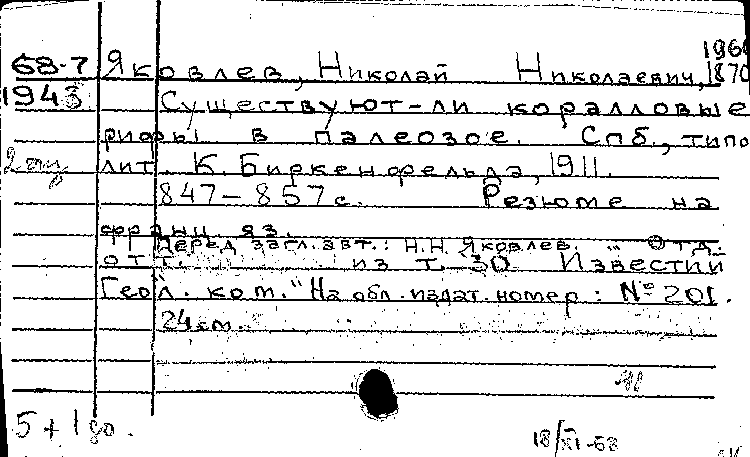 1966
68-7 Яковлев, Николай Николаевич, 1870
1943 Существуют-ли коралловые
рифы в палеозое. Спб., типо
лит. К. Биркенфельда, 1911.
847-857 с. Резюме на
франц. яз.
Перед загл. авт.: Н.Н. Яковлев. Отд.
отт. из т. 30 "Известий
Геол. ком." На обл. издат. номер: № 201.
24 см.
5 + 1 до.
18/XI-68